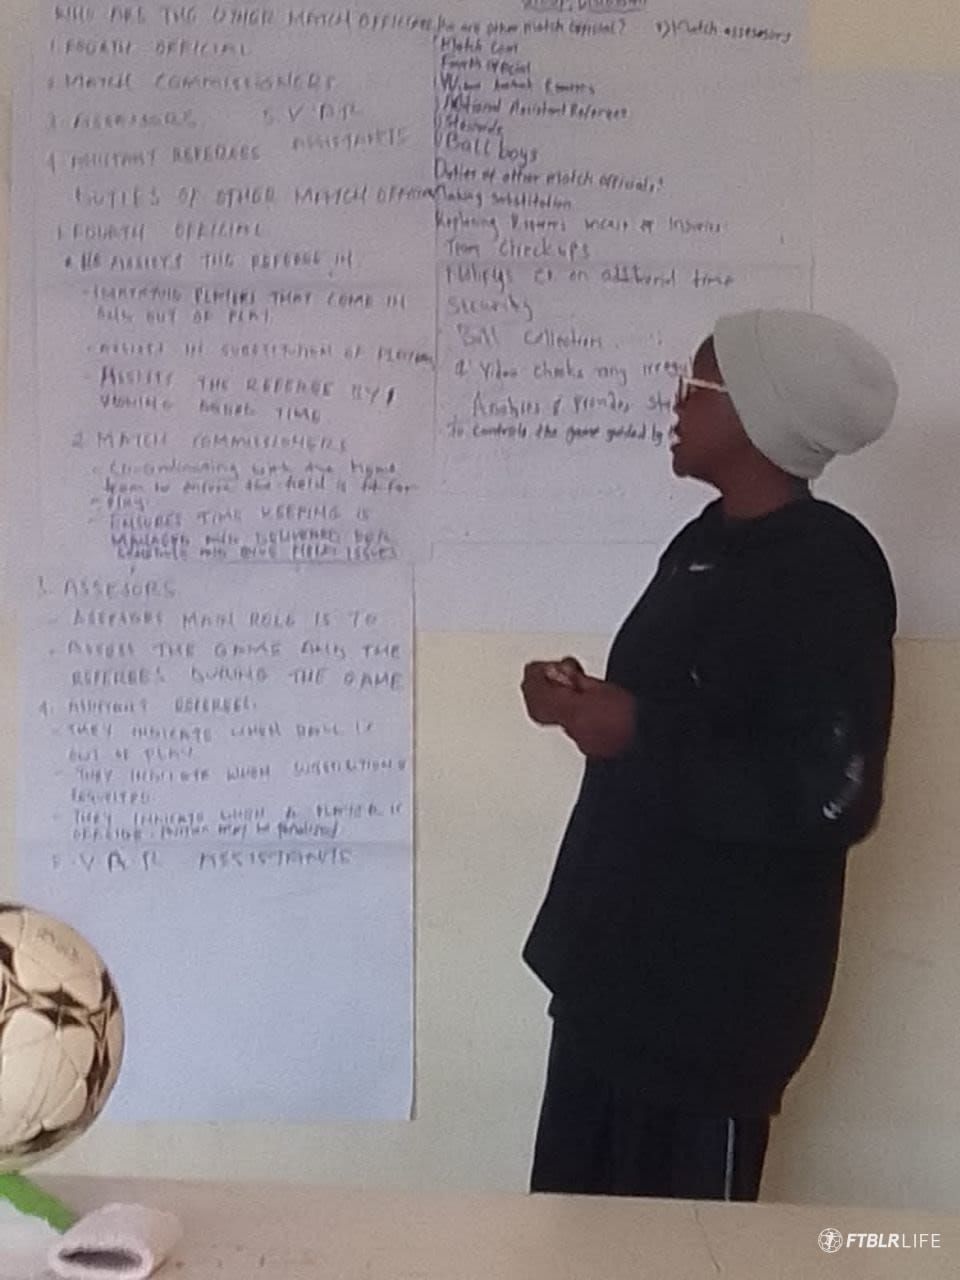 WHO ARE THE OTHER MATCH OFFICIALS
1. FOURTH OFFICIAL
2. MATCH COMMISSIONERS
3. ASSESSORS 5. V A R
4. ASSISTANT REFEREES ASSISTANTS
DUTIES OF OTHER MATCH OFFICIALS
1. FOURTH OFFICIAL
HE ASSISTS THE REFEREE IN
PLAYERS THAT COME IN
OUT OF PLAY
- ASSISTS IN SUBSTITUTION OF PLAYERS
- ASSISTS THE REFEREE BY
TIME
2. MATCH COMMISSIONERS
- Co-ordinating with the home
team to ensure the field is fit for
play.
- ENSURES TIME KEEPING IS
MANAGED AND DELIVERED
ISSUES
3. ASSESORS
- ASSESSORS MAIN ROLE IS TO
ASSESS THE GAME AND THE
REFEREES DURING THE GAME
4. ASSISTANT REFEREES.
- THEY INDICATE WHEN BALL IS
OUT OF PLAY
- THEY INDICATE WHEN
REQUESTED
- THEY INDICATE WHEN A PLAYER IS
may be penalised
5. V A R ASSISTANTS
are other match official? 8) Match assessors
Match Com
Fourth official
Additional Assistant Referees
Stewards
Ball boys
Duties of other match officials:
Making substitution
Replacing Referees incase of Injuries
Team Checkups
on additional time
Security
Ball Collection
Video checks any
Analyses &
To controls the game guided by
FTBLRLIFE